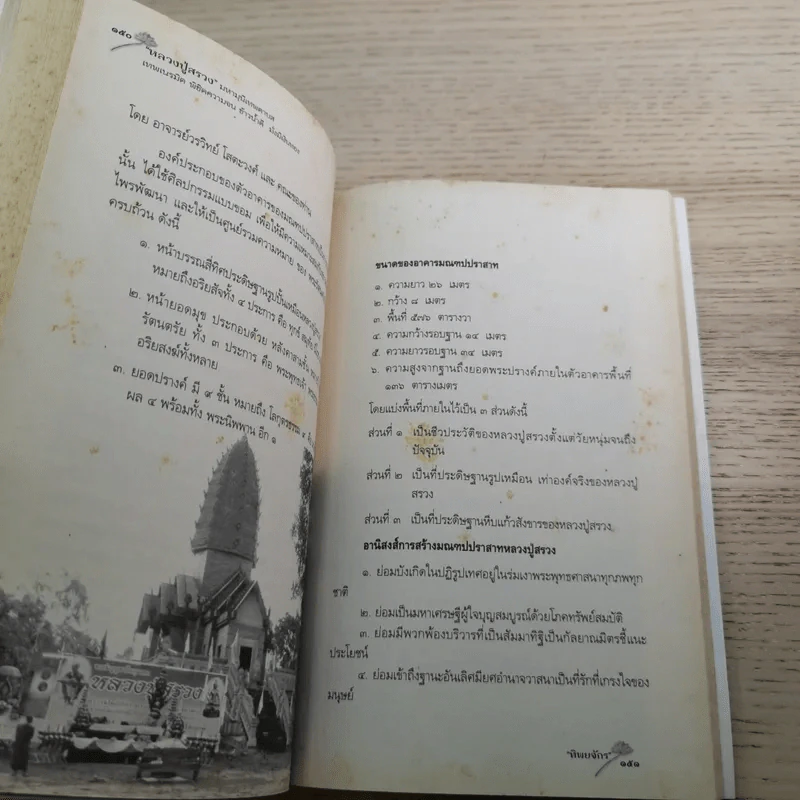 ๑๕๐
"หลวงปู่สรวง" มหามุนีเทพดาบส
เทพเนรมิต พิชิตความจน ข้าวน้ำดี
โดย อาจารย์วรวิทย์ โสตะวงศ์ และ คณะของท่าน
องค์ประกอบของตัวอาคารของมณฑปปราสาท
นั้น ได้ใช้ศิลปกรรมแบบขอม เพื่อให้มีความ
ไพรพัฒนา และให้เป็นศูนย์รวมความหมาย ของ
ครบถ้วน ดังนี้
๑. หน้าบรรณสี่ทิศประดิษฐานรูปปั้นเหมือนหลวงปู่
หมายถึงอริยสัจทั้ง ๔ ประการ คือ ทุกข์ สมุทัย
๒. หน้ายอดมุข ประกอบด้วย หลังคาสามชั้น
รัตนตรัย ทั้ง ๓ ประการ คือ พระพุทธเจ้า
อริยสงฆ์ทั้งหลาย
๓. ยอดปรางค์ มี ๙ ชั้น หมายถึง โลกุตรธรรม ๙
ผล ๔ พร้อมทั้ง พระนิพพาน อีก ๑
หลวงปู่สรวง
ขนาดของอาคารมณฑปปราสาท
๑. ความยาว ๒๖ เมตร
๒. กว้าง ๘ เมตร
๓. พื้นที่ ๕๗๖ ตารางวา
๔. ความกว้างรอบฐาน ๑๔ เมตร
๕. ความยาวรอบฐาน ๓๔ เมตร
๖. ความสูงจากฐานถึงยอดพระปรางค์ภายในตัวอาคารพื้นที่
๑๓๖ ตารางเมตร
โดยแบ่งพื้นที่ภายในไว้เป็น ๓ ส่วนดังนี้
ส่วนที่ ๑ เป็นชีวประวัติของหลวงปู่สรวงตั้งแต่วัยหนุ่มจนถึง
ปัจจุบัน
ส่วนที่ ๒ เป็นที่ประดิษฐานรูปเหมือน เท่าองค์จริงของหลวงปู่
สรวง
ส่วนที่ ๓ เป็นที่ประดิษฐานหีบแก้วสังขารของหลวงปู่สรวง
อานิสงส์การสร้างมณฑปปราสาทหลวงปู่สรวง
๑. ย่อมบังเกิดในปฏิรูปเทศอยู่ในร่มเงาพระพุทธศาสนาทุกภพทุก
ชาติ
๒. ย่อมเป็นมหาเศรษฐีผู้ใจบุญสมบูรณ์ด้วยโภคทรัพย์สมบัติ
๓. ย่อมมีพวกพ้องบริวารที่เป็นสัมมาทิฐิเป็นกัลยาณมิตรชี้แนะ
ประโยชน์
๔. ย่อมเข้าถึงฐานะอันเลิศมียศอำนาจวาสนาเป็นที่รักที่เกรงใจของ
มนุษย์
"ทิพยจักร"
๑๕๑